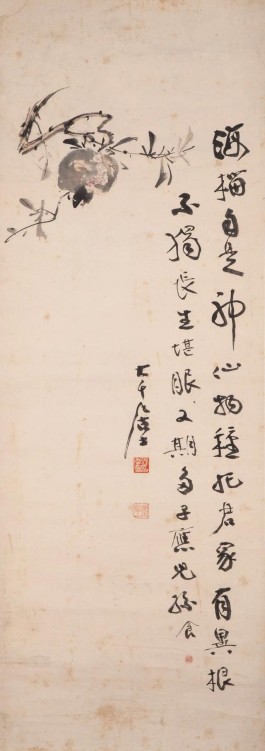 海榴自是神仙物種托君家有異根
不獨長生堪服又期多子應兒孫食
大千居士